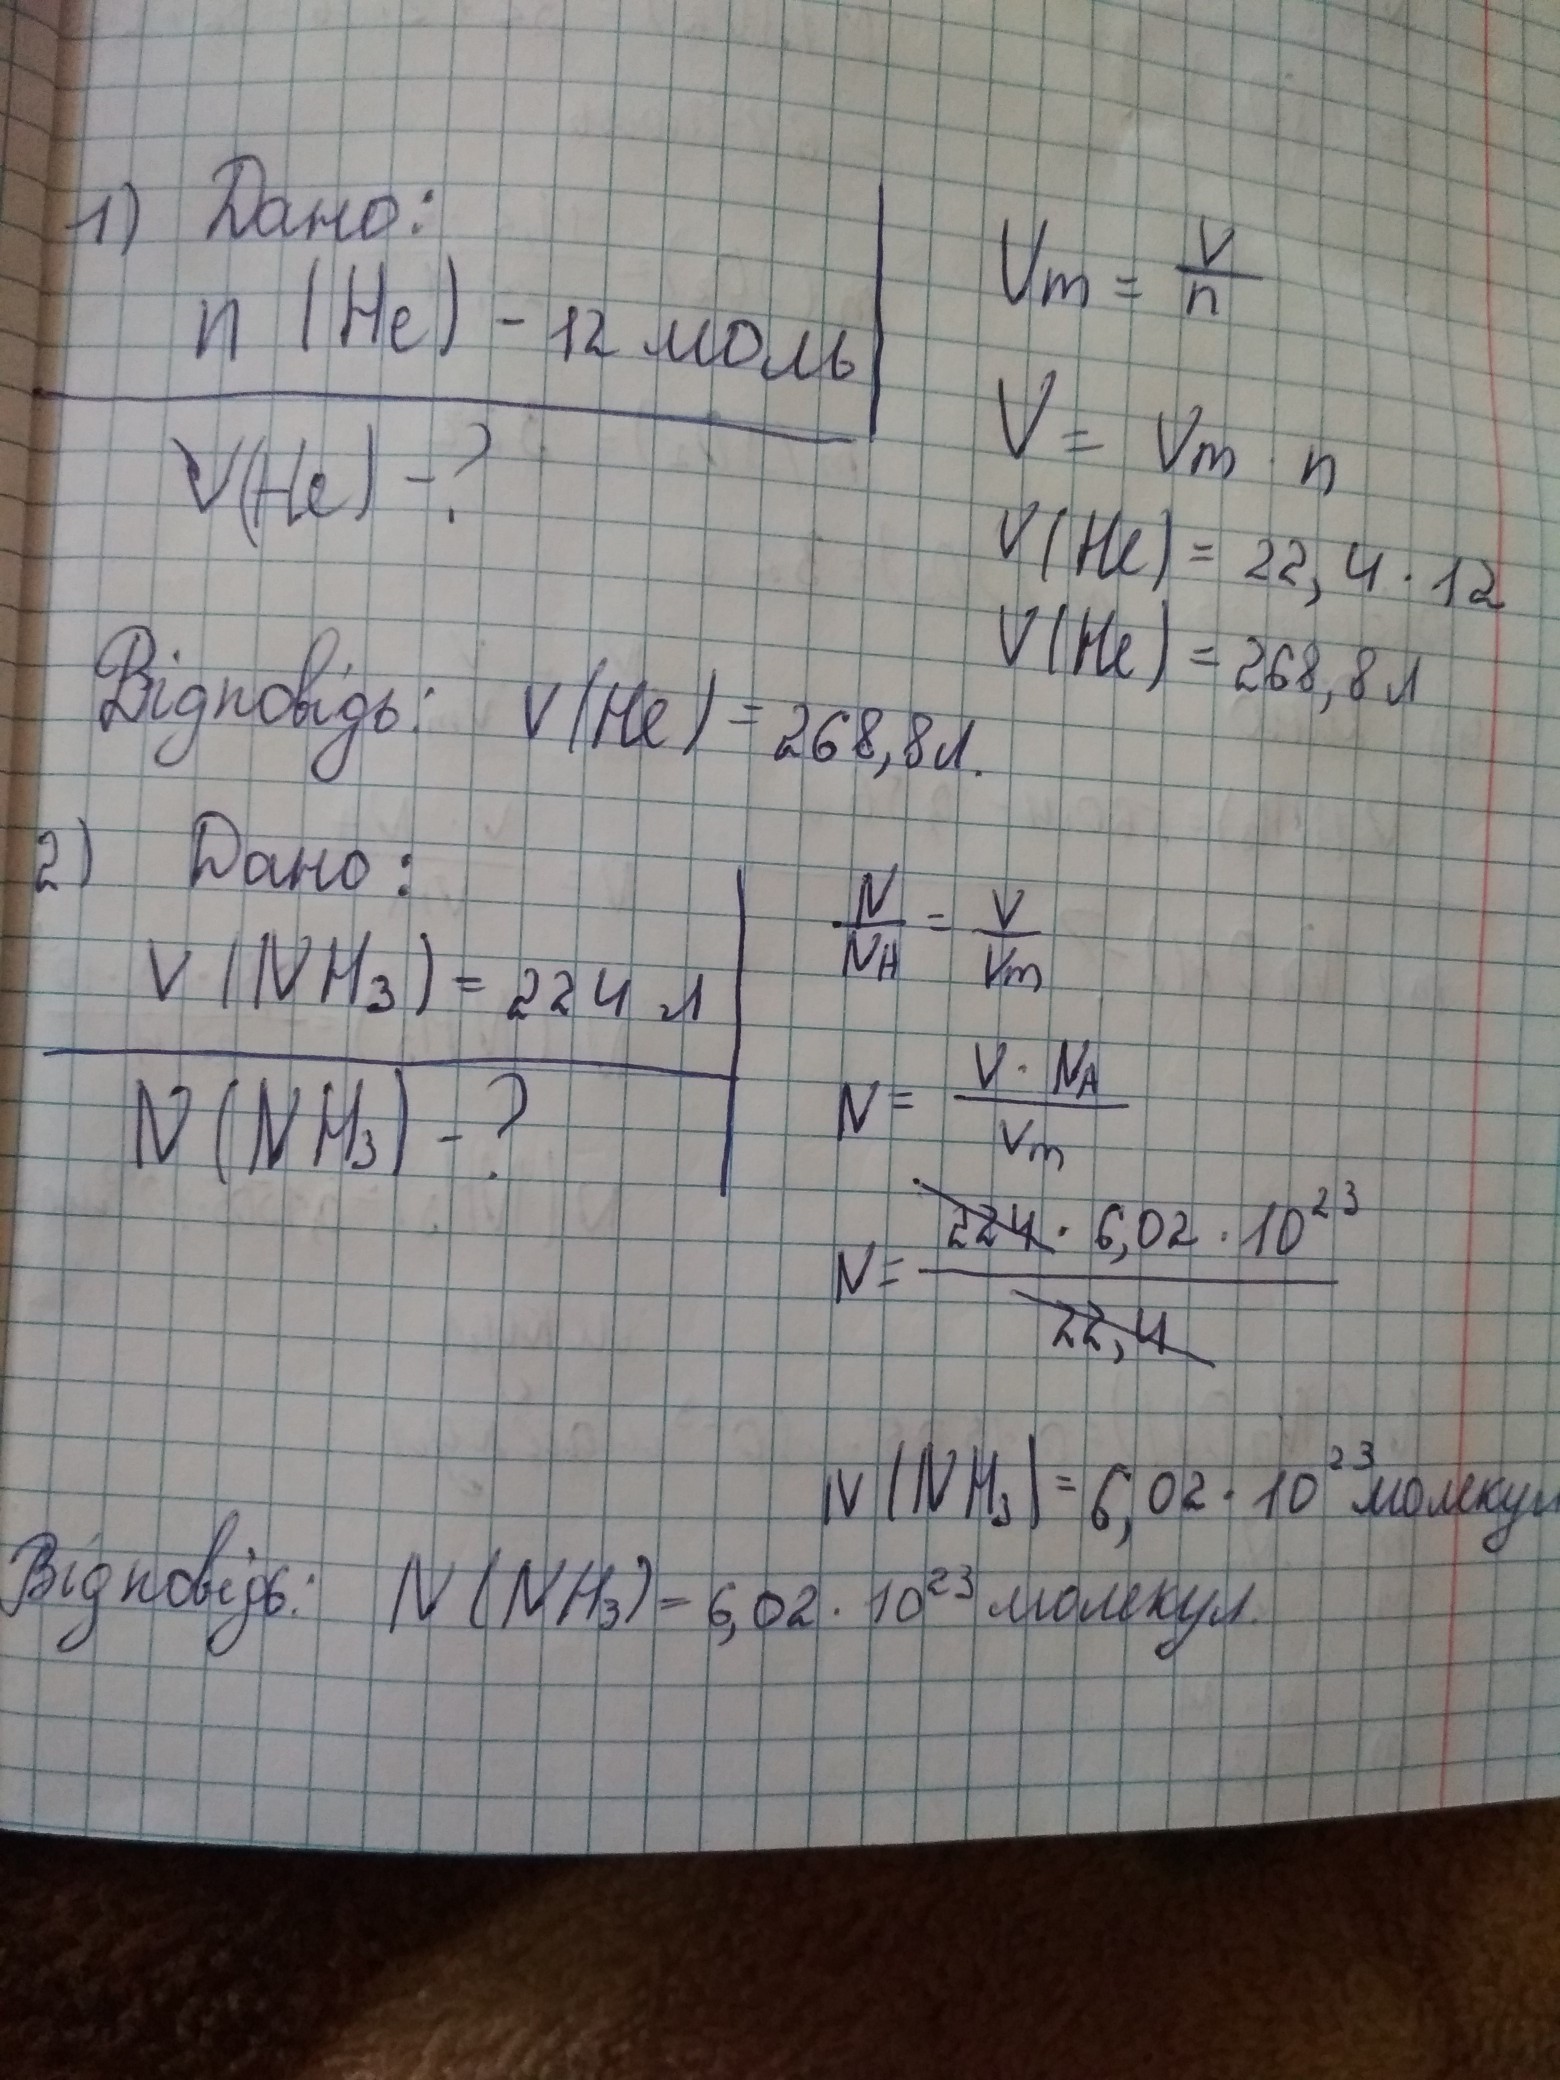 1) Дано:
n (He) - 12 моль
V(He) - ?
Vm = V/n
V = Vm · n
V(He) = 22,4 · 12
V(He) = 268,8 л
Відповідь: V(He) = 268,8 л.
2) Дано:
V(NH₃) = 224 л
N(NH₃) - ?
N/NA = V/Vm
N = V · NA / Vm
N = 224 · 6,02 · 10²³ / 22,4
N(NH₃) = 6,02 · 10²³ молекул
Відповідь: N(NH₃) = 6,02 · 10²³ молекул.